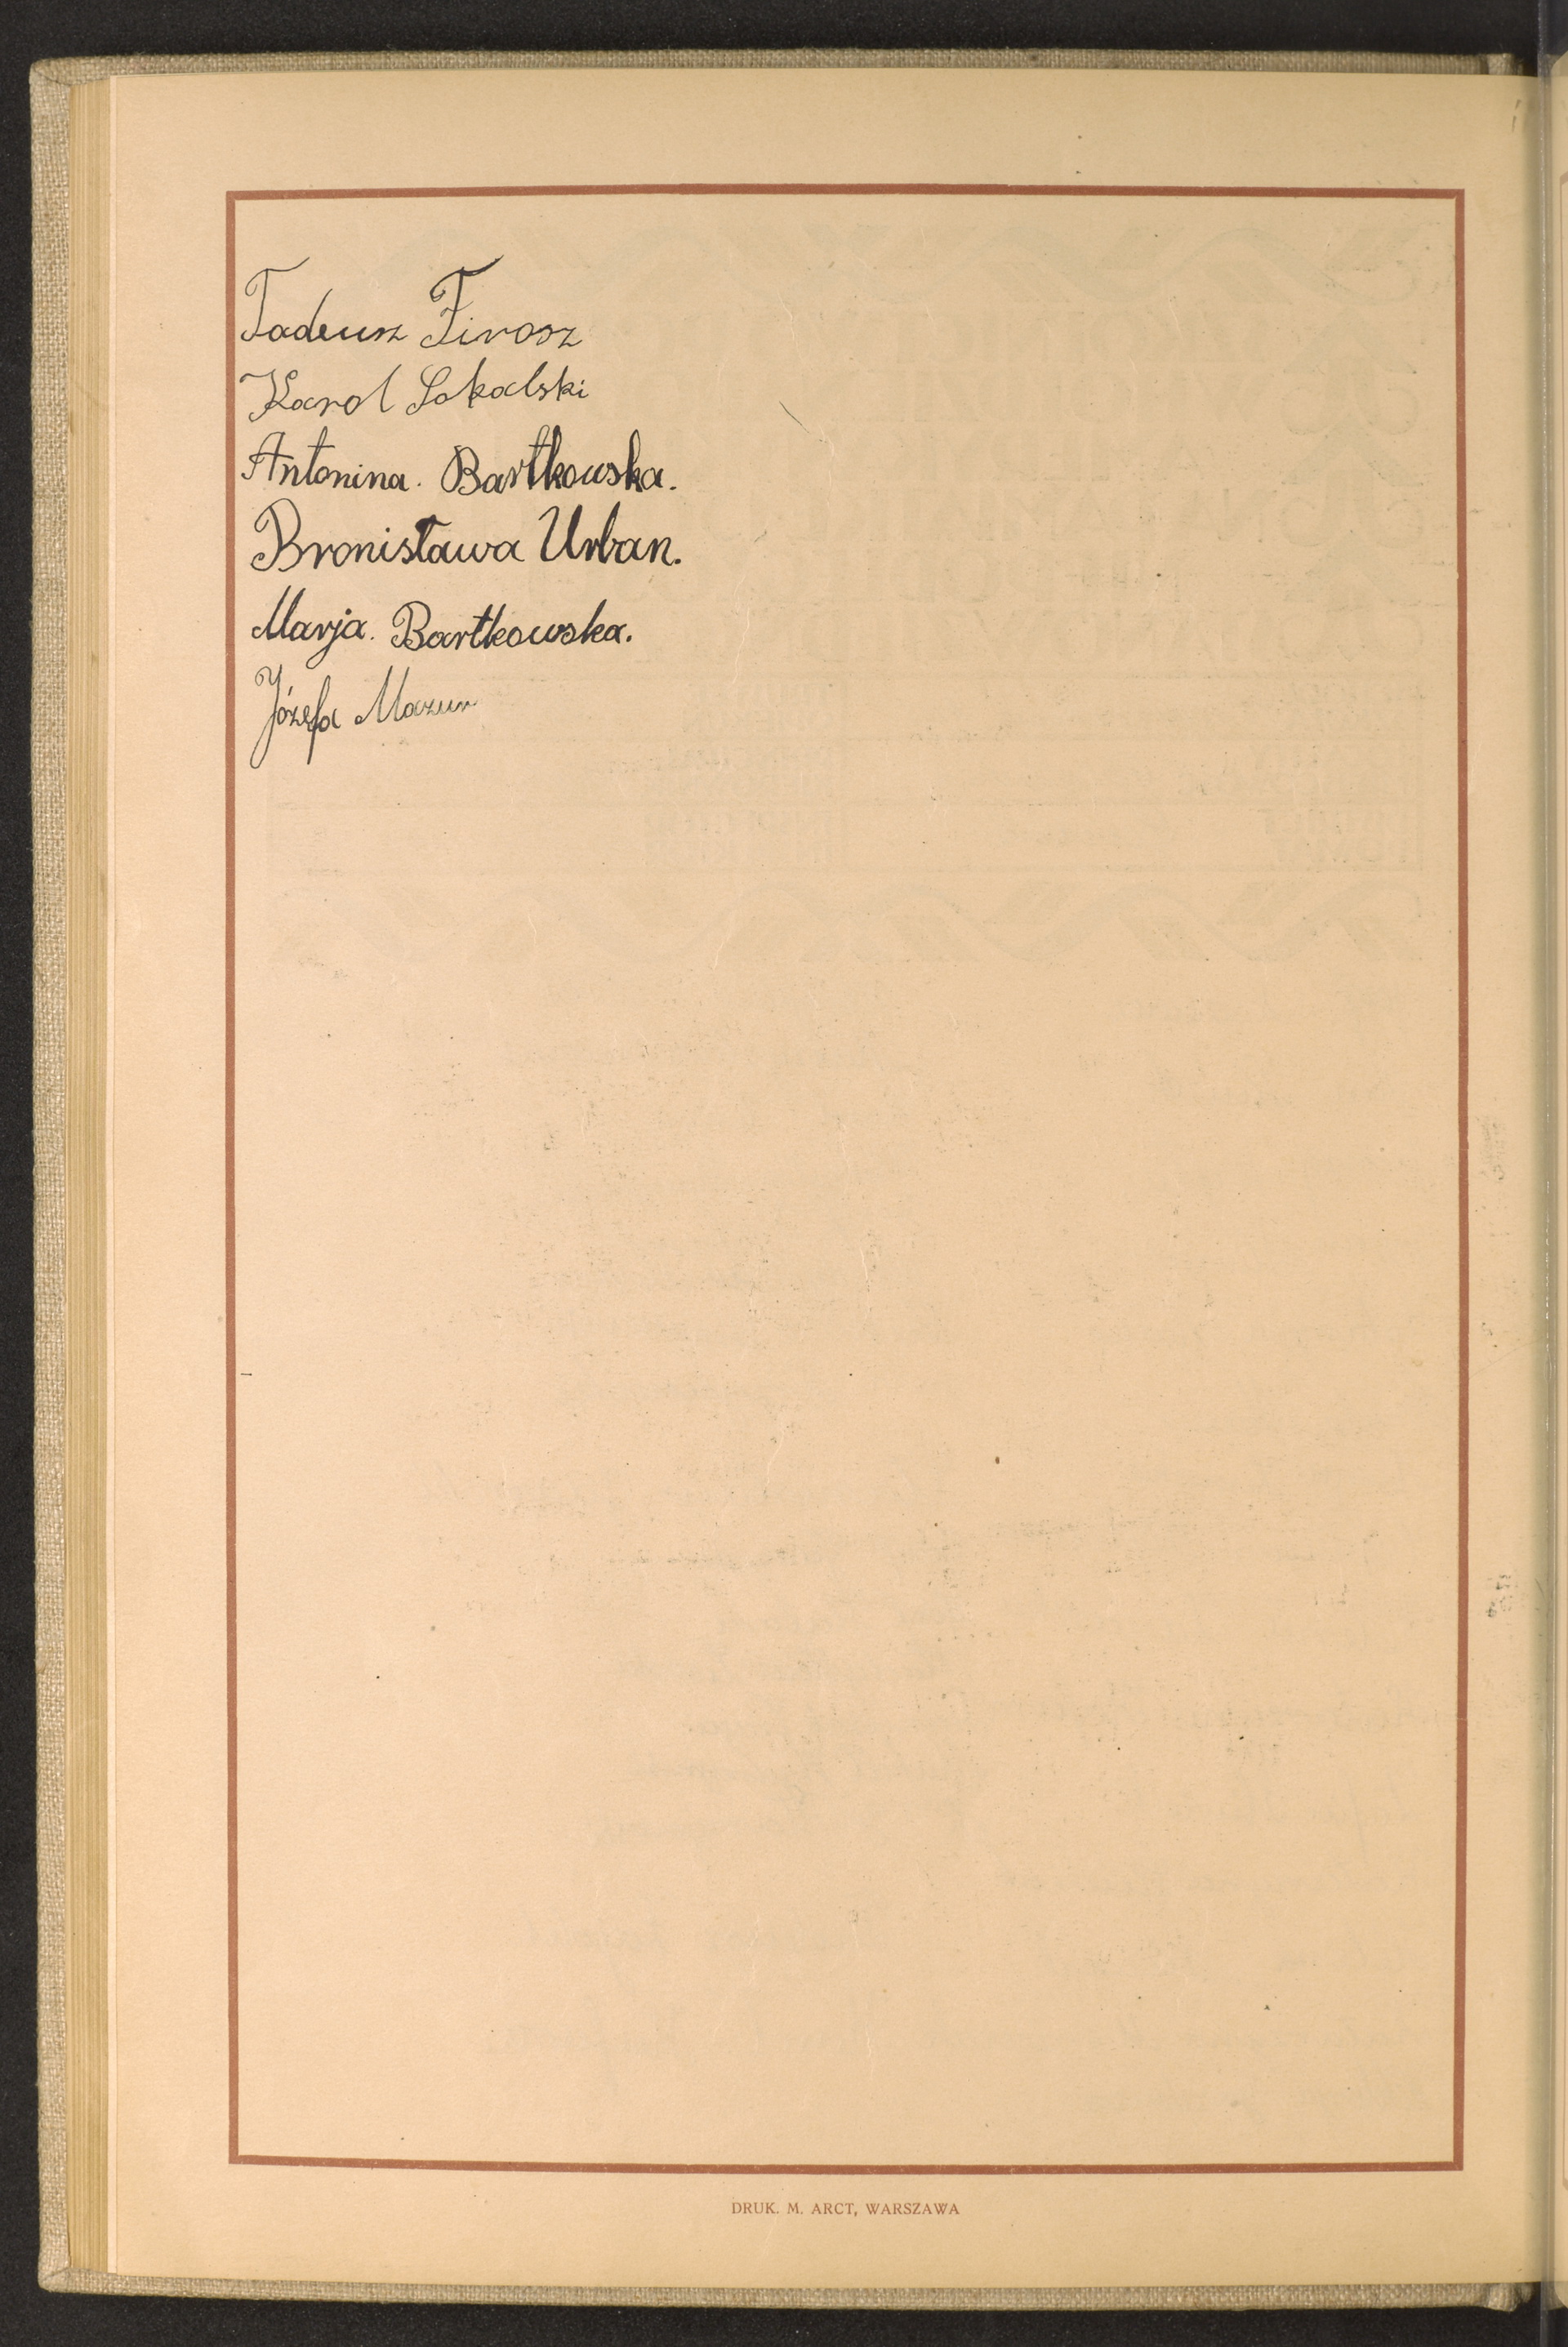 Tadeusz Firosz
Karol Sokalski
Antonina. Bartkowska.
Bronisława Urban.
Marja. Bartkowska.
Józefa Mazur
DRUK. M. ARCT, WARSZAWA